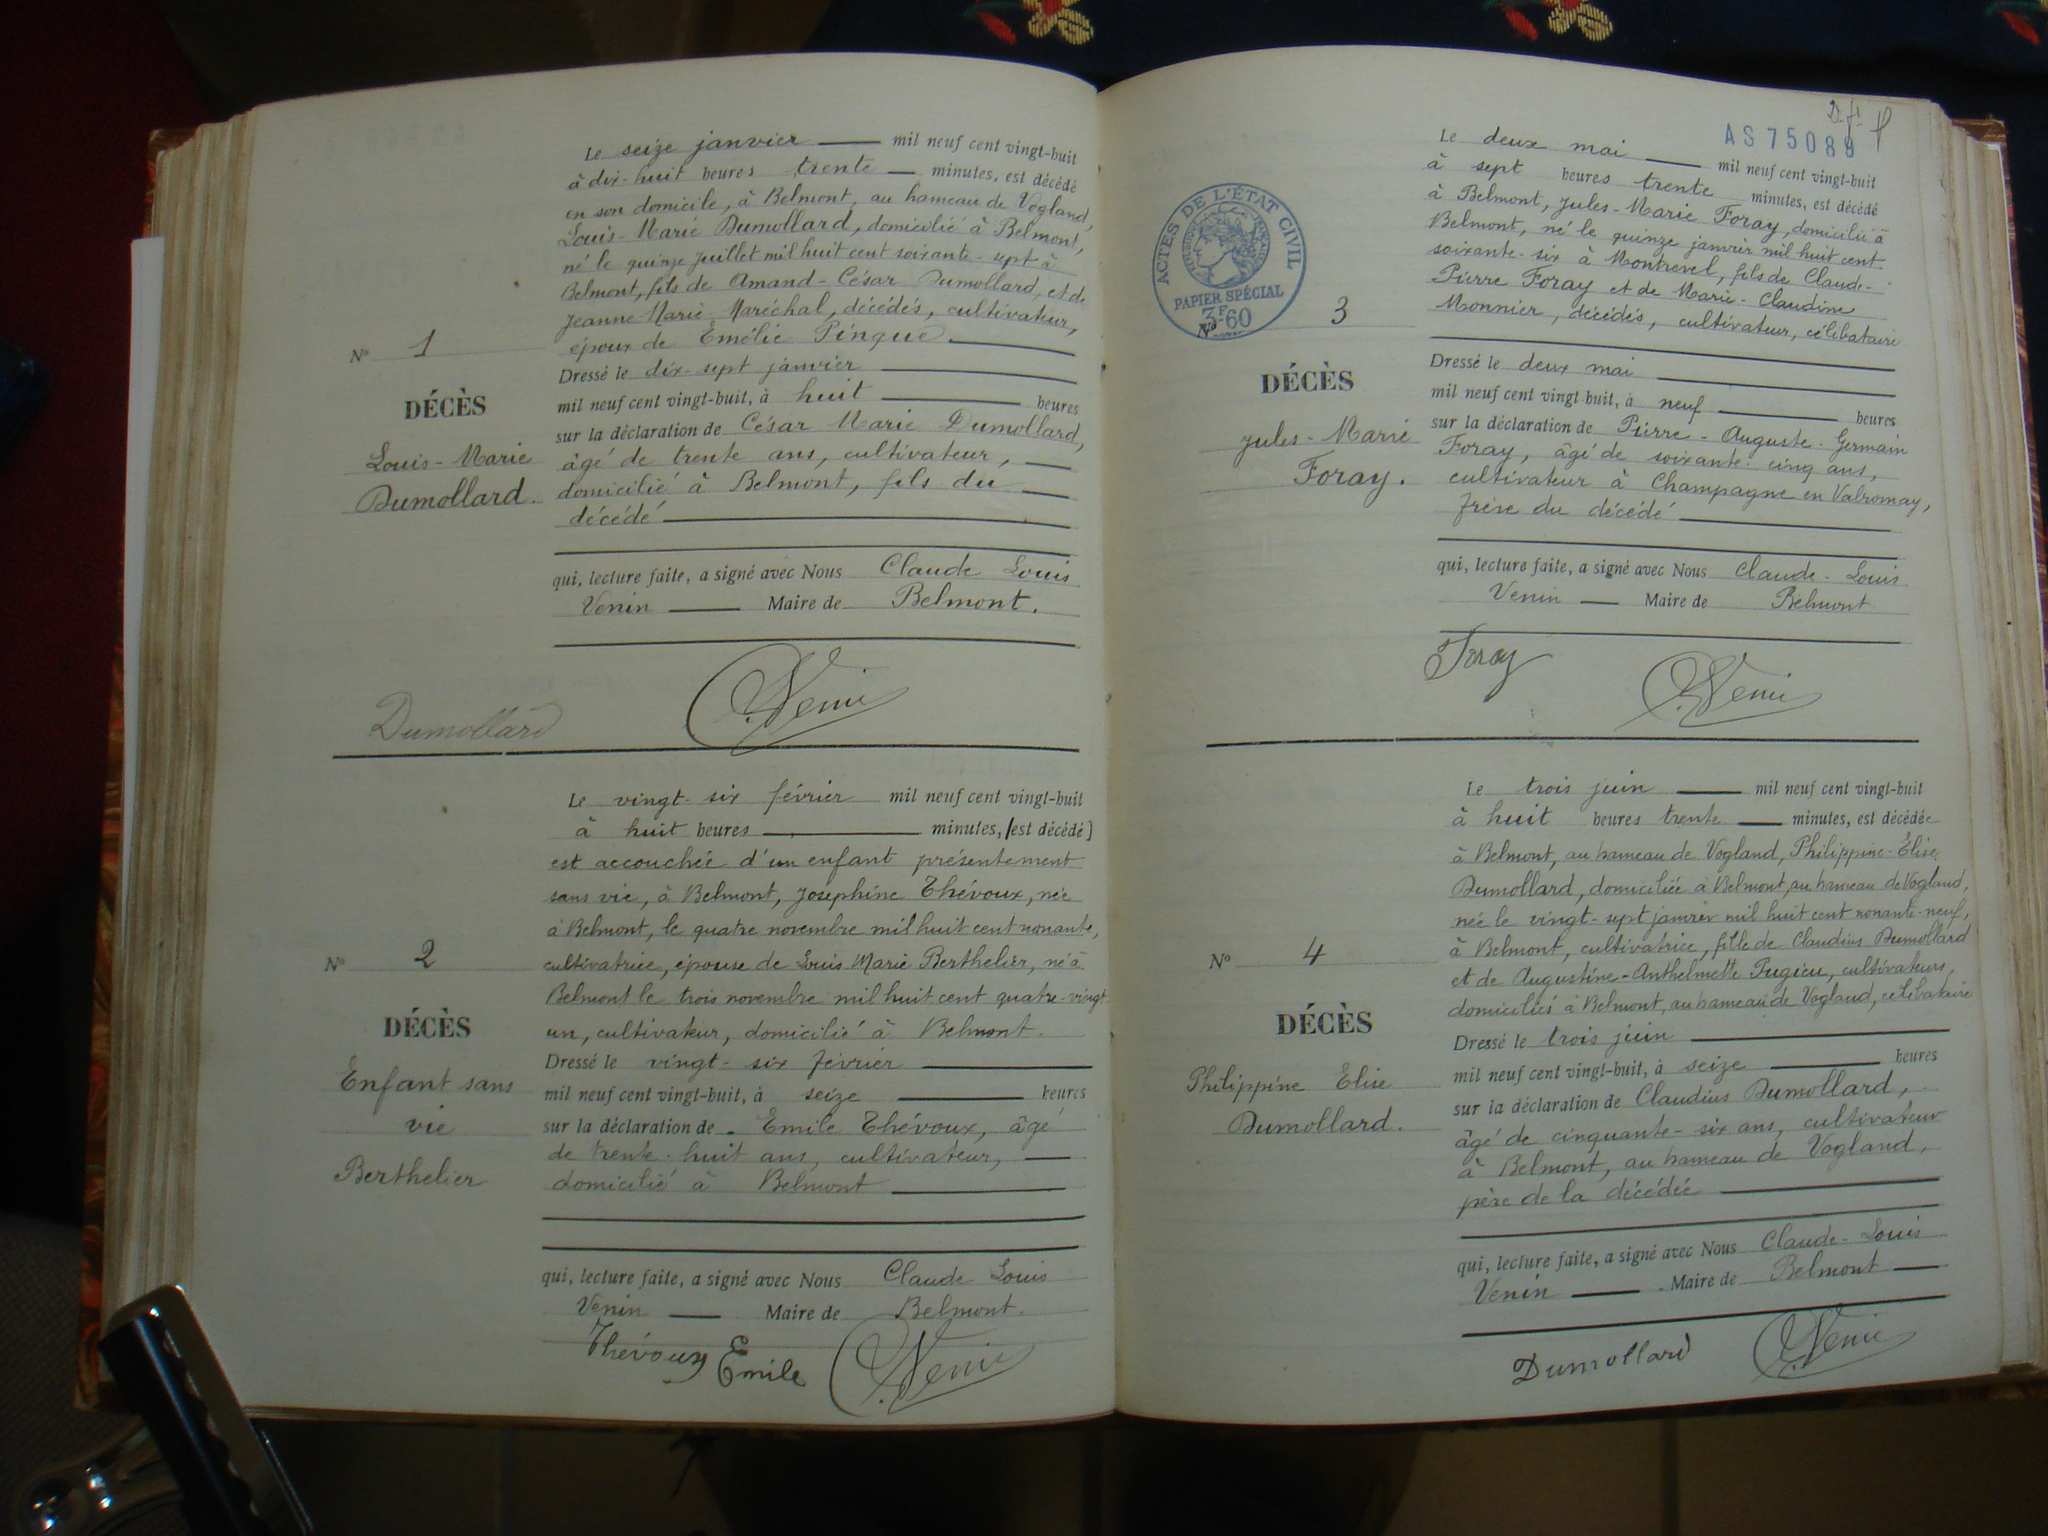 Le seize janvier mil neuf cent vingt-huit
à dix-huit heures trente minutes, est décédé
en son domicile, à Belmont, au hameau de Vogland,
Louis-Marie Dumollard, domicilié à Belmont,
né le quinze juillet mil huit cent soixante-sept à
Belmont, fils de Amand-César Dumollard, et de
Jeanne-Marie Maréchal, décédés, cultivateur,
époux de Emélie Pingue.
Nº 1
DÉCÈS
Louis-Marie
Dumollard.
Dressé le dix-sept janvier
mil neuf cent vingt-huit, à huit heures
sur la déclaration de César Marie Dumollard,
âgé de trente ans, cultivateur,
domicilié à Belmont, fils du
décédé
qui, lecture faite, a signé avec Nous Claude Louis
Venin Maire de Belmont.
Dumollard CVenin
Le vingt-six février mil neuf cent vingt-huit
à huit heures minutes, [est décédé]
est accouchée d'un enfant présentement
sans vie, à Belmont, Joséphine Thévoux, née
à Belmont, le quatre novembre mil huit cent nonante,
cultivatrice, épouse de Louis Marie Berthelier, né à
Belmont le trois novembre mil huit cent quatre-vingt
un, cultivateur, domicilié à Belmont.
Nº 2
DÉCÈS
Enfant sans
vie
Berthelier
Dressé le vingt-six février
mil neuf cent vingt-huit, à seize heures
sur la déclaration de Emile Thévoux, âgé
de trente-huit ans, cultivateur,
domicilié à Belmont
qui, lecture faite, a signé avec Nous Claude Louis
Venin Maire de Belmont.
Thévoux Emile CVenin
AS75089
ACTES DE L'ÉTAT CIVIL
PAPIER SPÉCIAL
3F60
Le deux mai mil neuf cent vingt-huit
à sept heures trente minutes, est décédé
à Belmont, Jules-Marie Foray, domicilié à
Belmont, né le quinze janvier mil huit cent
soixante-six à Montrevel, fils de Claude-
Pierre Foray et de Marie-Claudine
Monnier, décédés, cultivateur, célibataire
Nº 3
DÉCÈS
Jules-Marie
Foray.
Dressé le deux mai
mil neuf cent vingt-huit, à neuf heures
sur la déclaration de Pierre-Auguste-Germain
Foray, âgé de soixante-cinq ans,
cultivateur à Champagne en Valromay,
frère du décédé
qui, lecture faite, a signé avec Nous Claude-Louis
Venin Maire de Belmont
Foray CVenin
Le trois juin mil neuf cent vingt-huit
à huit heures trente minutes, est décédée
à Belmont, au hameau de Vogland, Philippine-Élise
Dumollard, domiciliée à Belmont, au hameau de Vogland,
née le vingt-sept janvier mil huit cent nonante-neuf,
à Belmont, cultivatrice, fille de Claudius Dumollard
et de Augustine-Anthelmette Fugieu, cultivateurs,
domiciliés à Belmont, au hameau de Vogland, célibataire
Nº 4
DÉCÈS
Philippine Elise
Dumollard.
Dressé le trois juin
mil neuf cent vingt-huit, à seize heures
sur la déclaration de Claudius Dumollard,
âgé de cinquante-six ans, cultivateur
à Belmont, au hameau de Vogland,
père de la décédée
qui, lecture faite, a signé avec Nous Claude-Louis
Venin Maire de Belmont
Dumollard CVenin